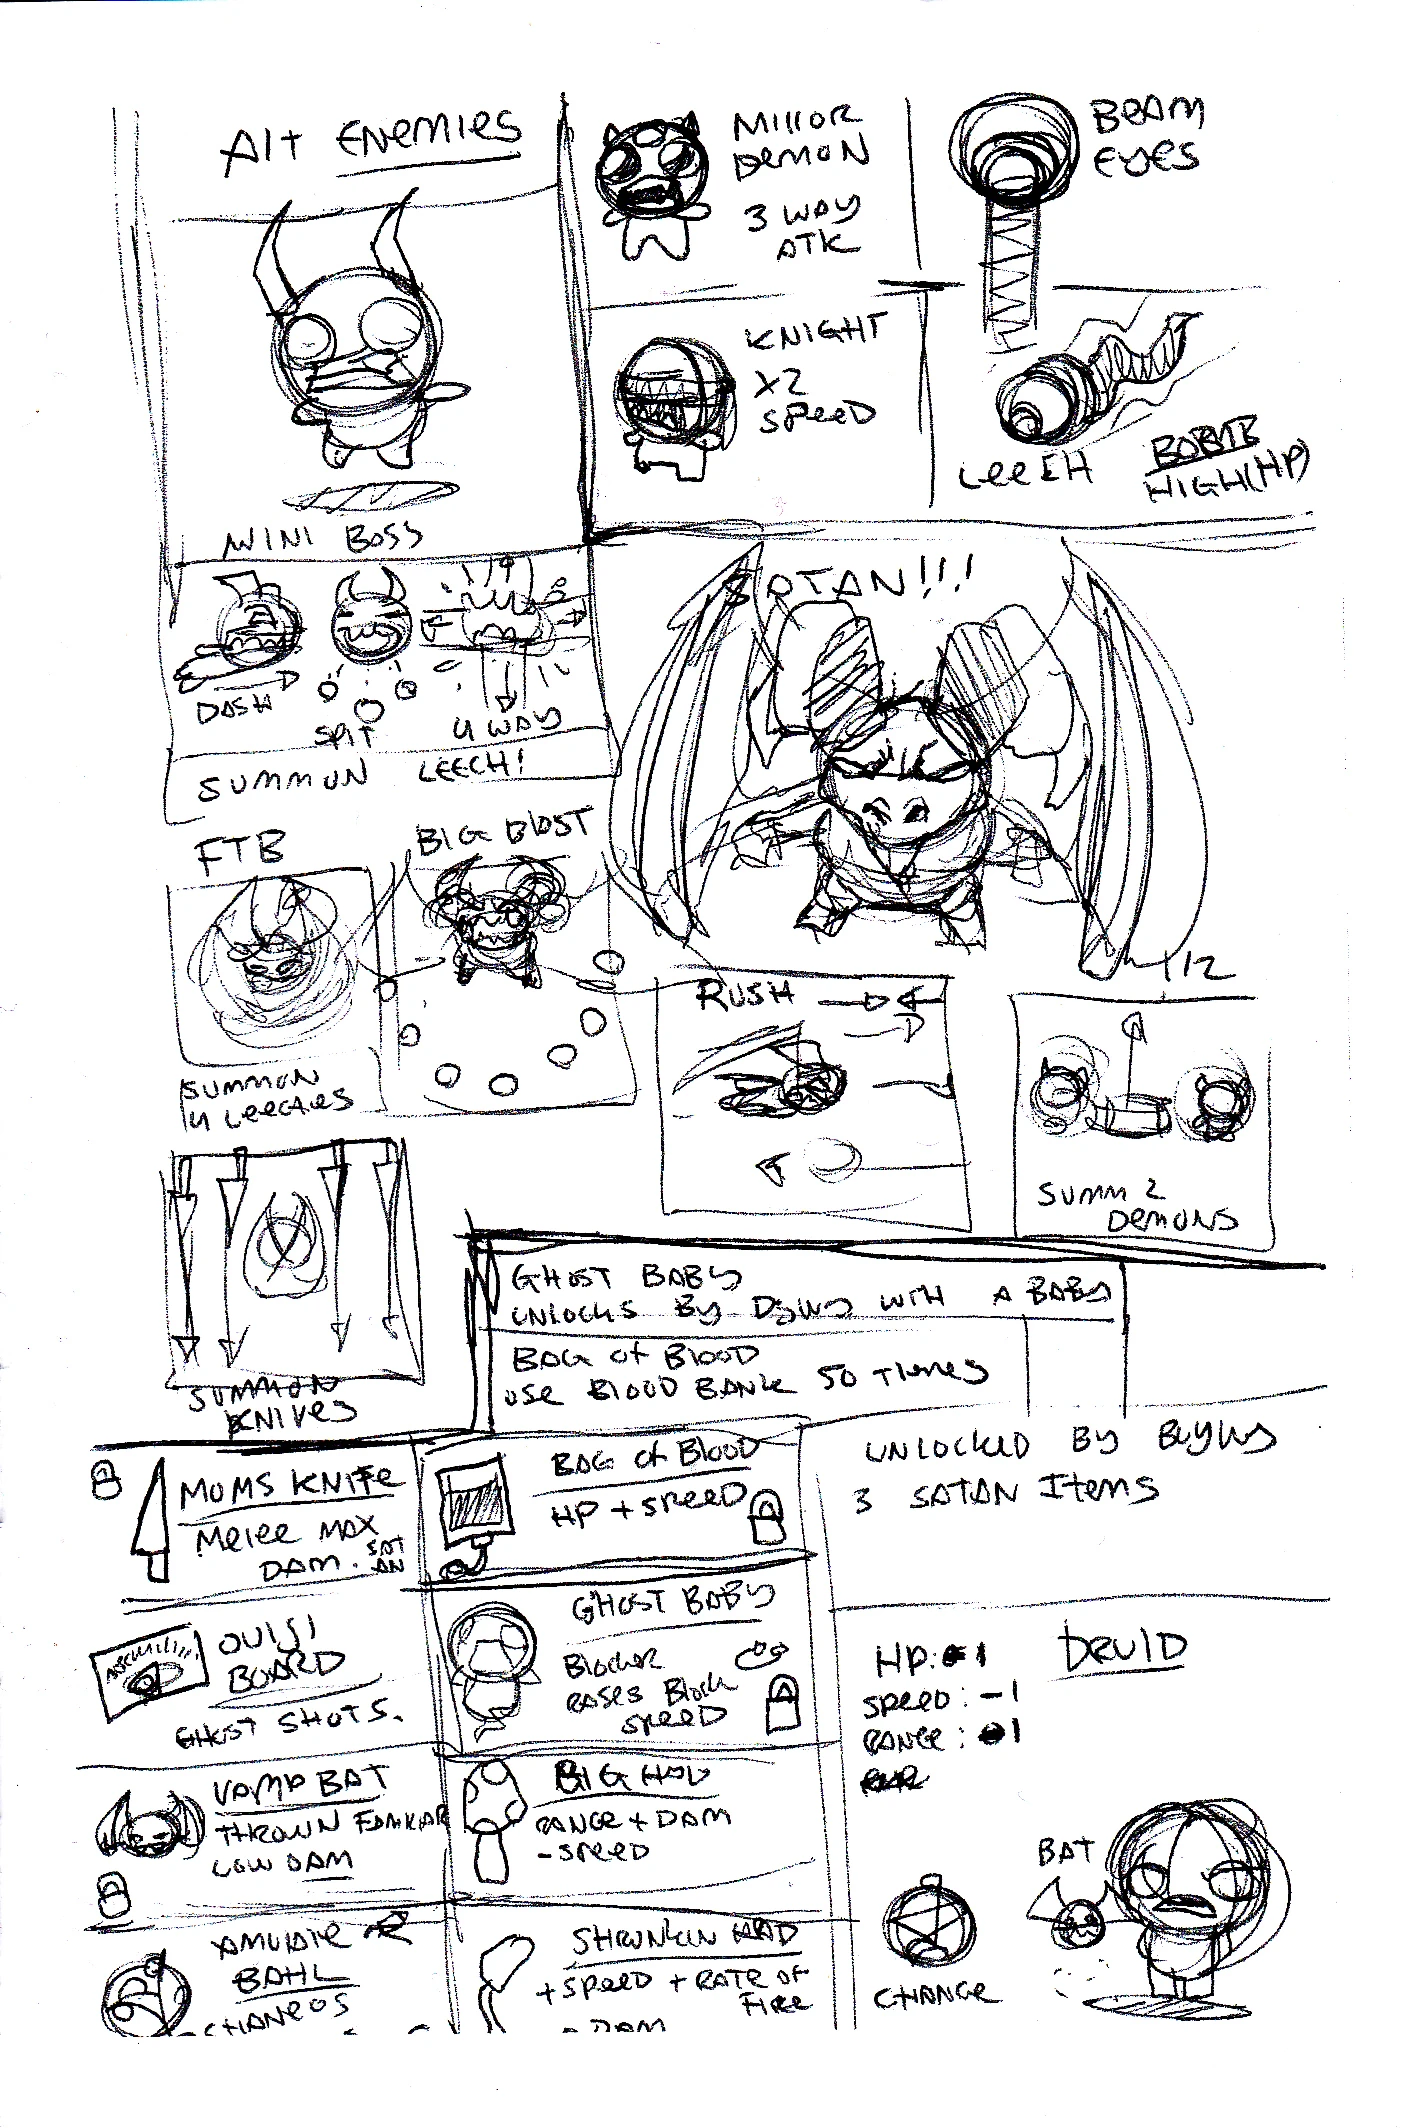 Alt ENEMIES
MINI BOSS
DASH
SPIT
4 WAY
SUMMON LEECH!
MIRROR
DEMON
3 WAY
ATK
BEAM
EYES
KNIGHT
X2
SPEED
LEECH
HIGH(HP)
SATAN!!!
FTB
SUMMON
4 LEECHES
BIG BLAST
RUSH
1/2
SUMM 2
DEMONS
SUMMON
KNIVES
GHOST BABY
UNLOCKS BY DYING WITH A BABY
BAG OF BLOOD
USE BLOOD BANK 50 TIMES
MOMS KNIFE
MELEE MAX
DAM.
SAT
AN
BAG OF BLOOD
HP + SPEED
UNLOCKED BY BUYING
3 SATAN ITEMS
OUIJI
BOARD
GHOST SHOTS.
GHOST BABY
BLOCKER
RASES BLOCK
SPEED
VAMP BAT
THROWN FAMILIAR
LOW DAM
BIG HAD
RANGE + DAM
- SPEED
BAHL
SHRUNKIN HAD
+ SPEED + RATE OF
FIRE
DAM
DRUID
HP: 1
SPEED: -1
RANGE: 1
BAT
CHANGE